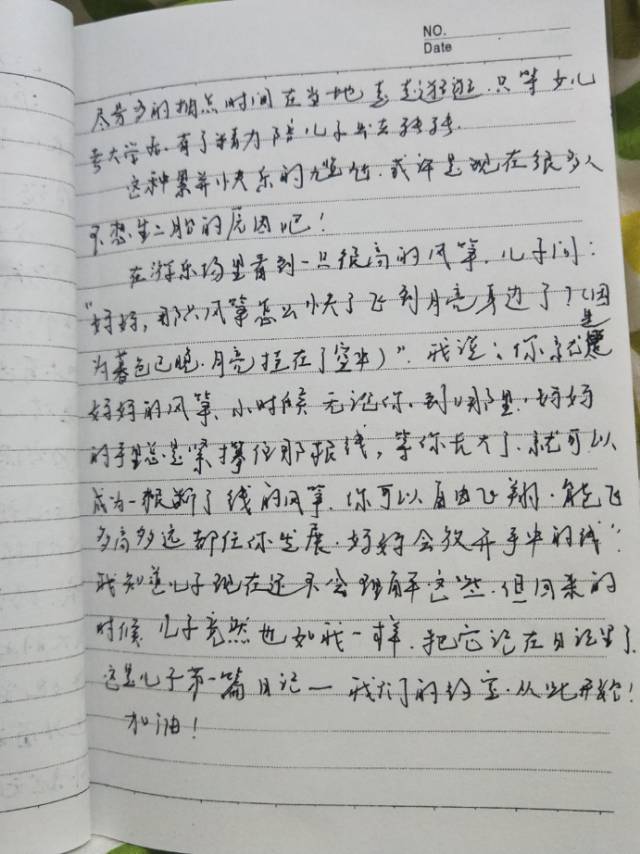 NO.
Date
尽量多的抽点时间在当地 去走逛逛.只等女儿
考大学后.有了精力陪儿子出去转转.
这种累并快乐的尴尬.或许是现在很多人
不想生二胎的原因吧!
在游乐场里看到一只很高的风筝,儿子问:
"妈妈,那只风筝怎么快了飞到月亮身边了?(因
为暮色已晚.月亮挂在了空中)".我说:你就是
妈妈的风筝,小时候无论你,到哪里,妈妈
的手里总是紧攥住那根线,等你长大了.就可以
成为一根断了线的风筝.你可以自由飞翔.能飞
多高多远都任你发展.妈妈会放开手中的线".
我知道儿子现在还不会理解这些.但回来的
时候,儿子竟然也如我一样.把它记在日记里了.
这是儿子第一篇日记—我们的约定.从此开始!
加油!